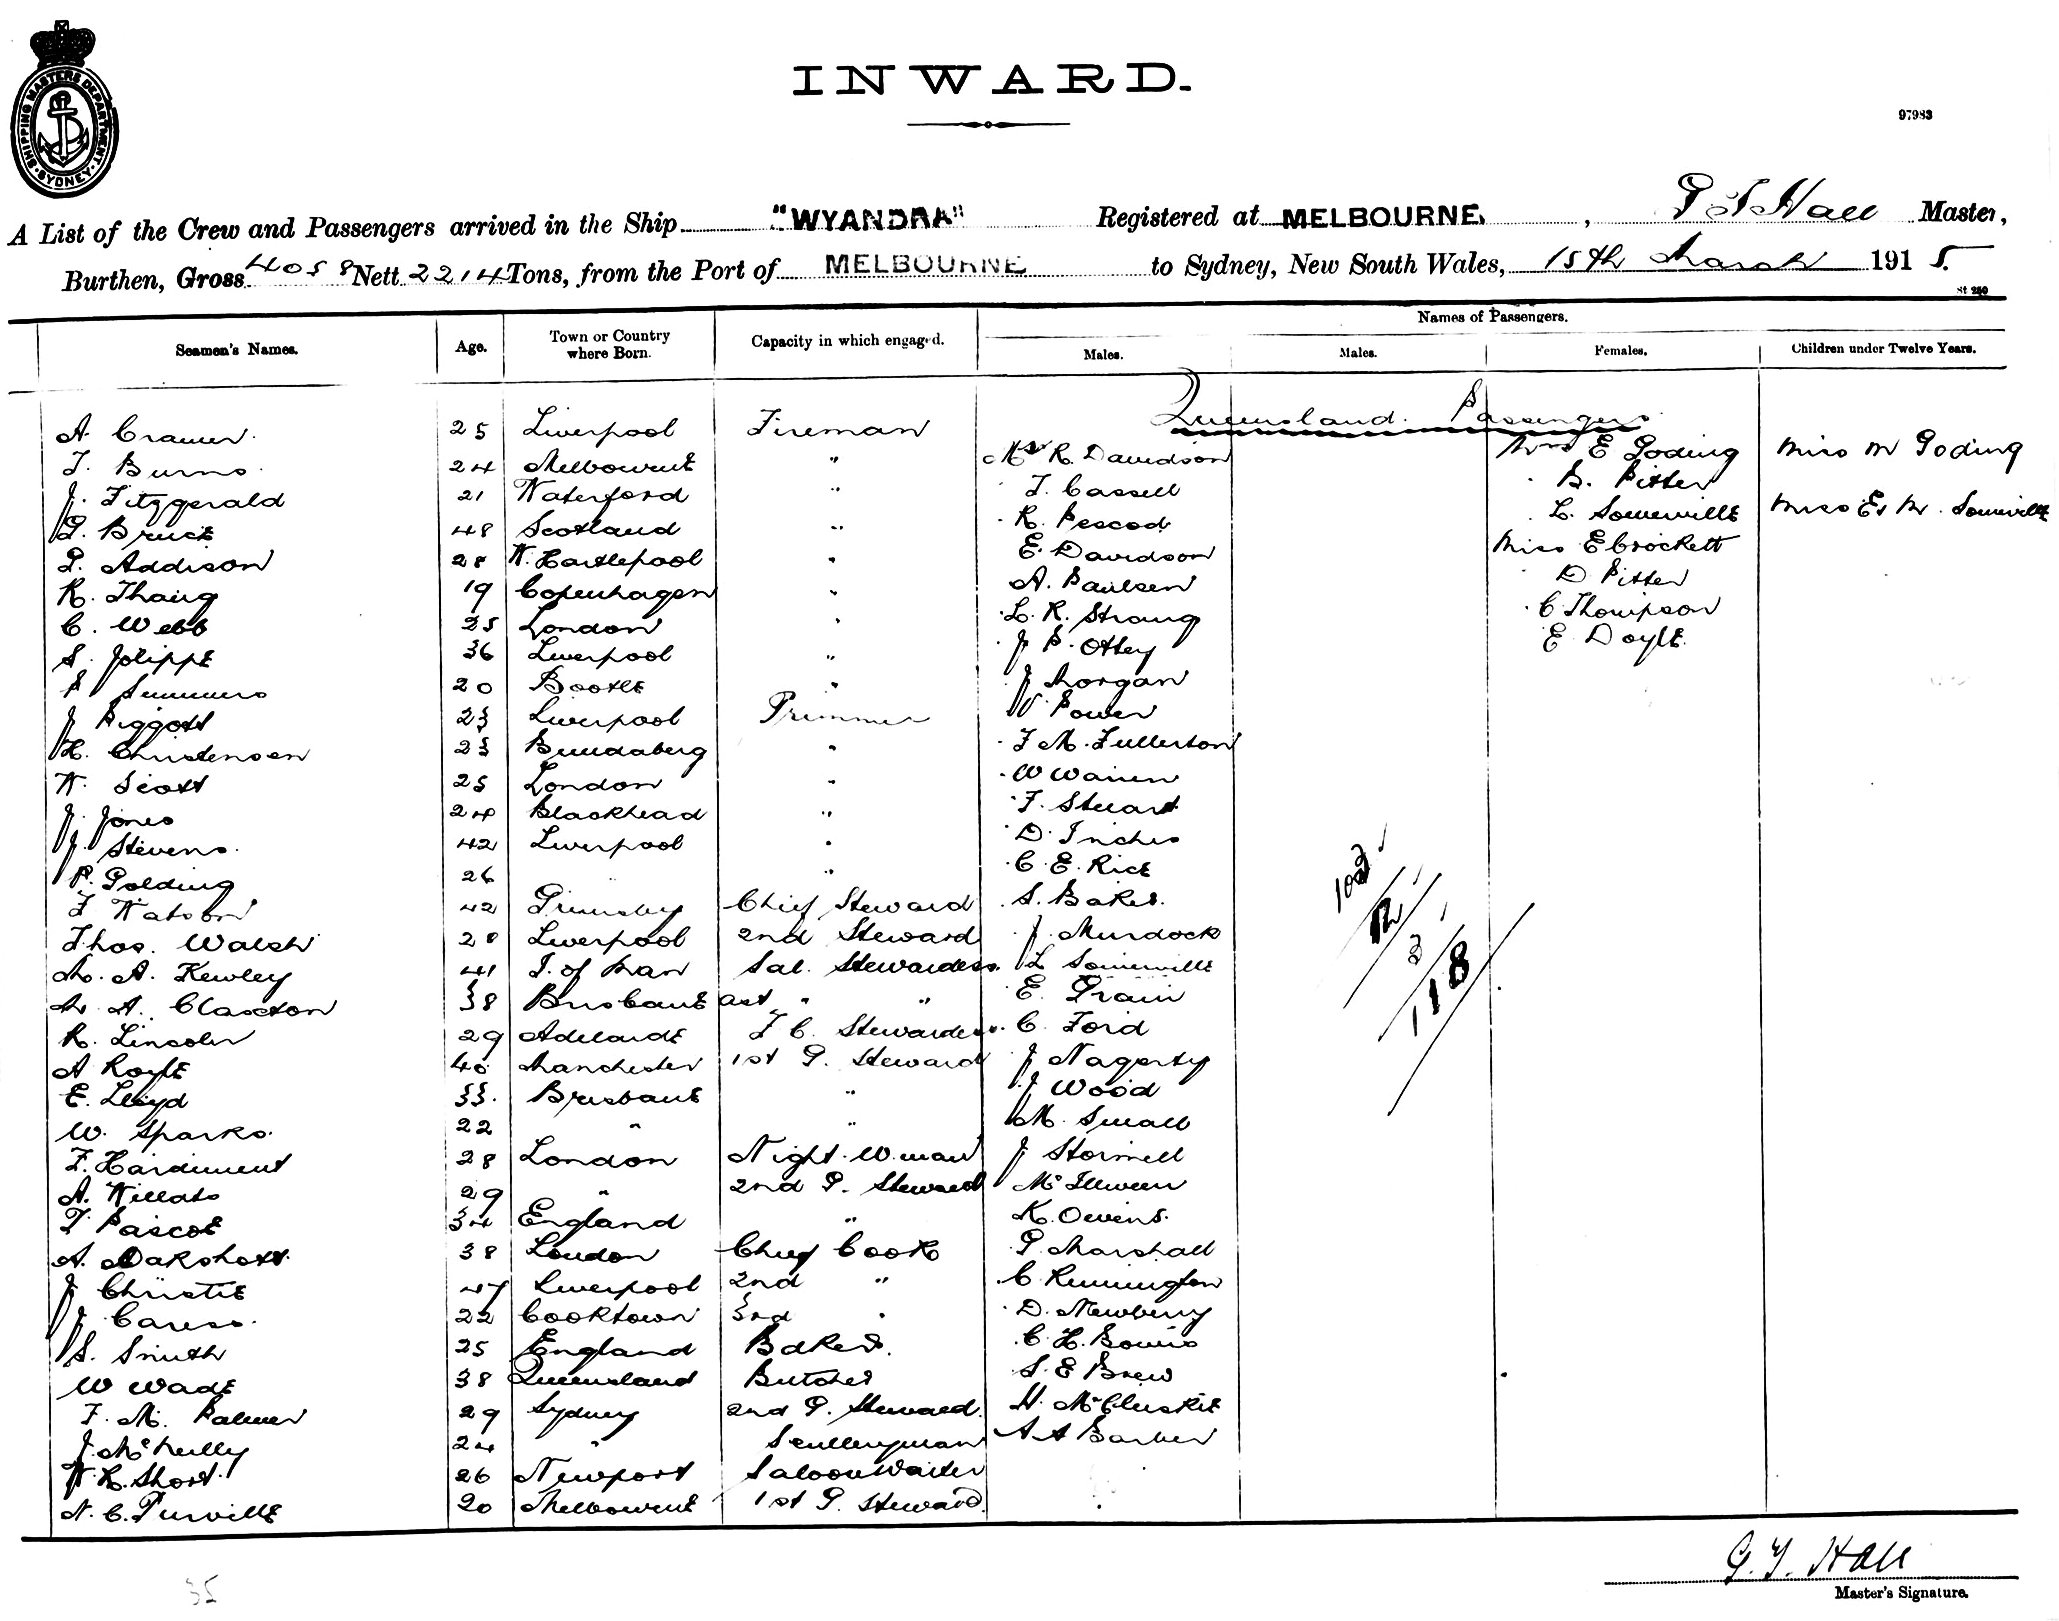 SHIPPING MASTERS DEPARTMENT. SYDNEY.
INWARD.
97983
A List of the Crew and Passengers arrived in the Ship "WYANDRA" Registered at MELBOURNE, G T Hall Master,
Burthen, Gross 4058 Nett 2214 Tons, from the Port of MELBOURNE to Sydney, New South Wales, 15th March 1915.
St 250
Names of Passengers.
Seamen's Names. Age. Town or Country where Born. Capacity in which engaged. Males. Males. Females. Children under Twelve Years.
Queensland Passengers
A. Cramer. 25 Liverpool Fireman Mr R. Davidson Mrs E Goding Miss M Goding
T. Burns. 24 Melbourne " T. Cassell B. Pitter
J. Fitzgerald 21 Waterford " R. Pescod L. Somerville Miss E. M. Somerville
G. Bruce 48 Scotland " E. Davidson Miss E Crockett
P. Addison 28 W. Hartlepool " A. Paulsen D Pitter
R. Thaing 19 Copenhagen " L. R. Strong C Thompson
C. Webb 25 London " J P. Ottey E Doyle.
S. Jolippe 36 Liverpool " J Morgan
P Summers 20 Bootle " V Power
J Piggott 23 Liverpool Trimmer F M. Fullerton
H. Christensen 23 Bundaberg " W Warren
W. Scott 25 London " F. Stuart
J. Jones 24 Blackhead " D. Inches
J. Stevens. 42 Liverpool " C. E. Rice
P. Golding 26 " " S. Baker.
F Watson 42 Grimsby Chief Steward J. Murdock
Thos. Walsh 28 Liverpool 2nd Steward L Somerville
M. A. Kewley 41 I. of Man Sal. Stewardess E. Train
M. A. Claxton 38 Brisbane asst " " C. Ford
R. Lincoln 29 Adelaide F C. Stewardess J Nagerty
A Royle 40 Manchester 1st P. Steward J Wood
E. Lloyd 33. Brisbane " M. Small
W. Sparks. 22 " " J Stormell
F. Hardiment 28 London Night W.man
A. Willats 29 " 2nd P. Steward K. Owens.
T Pascoe 34 England " P. Marshall
A. Oakshott. 38 London Chief Cook C Rennington
J Christie 47 Liverpool 2nd " D. Newberry
J Caress. 22 Cooktown 3rd " C. H. Bowis
S. Smith 25 England Baker. S. E Brew
W Wade 38 Queensland Butcher H. McCluskie
F. M. Palmer 29 Sydney 2nd P. Steward. A A Barber
J. McNeilly 24 " Scullleryman
W. R. Short. 26 Newport Saloon Waiter
N. C. Turville 20 Melbourne 1st P. Steward.
102
12
2
118
G. T. Hall
Master's Signature.
35